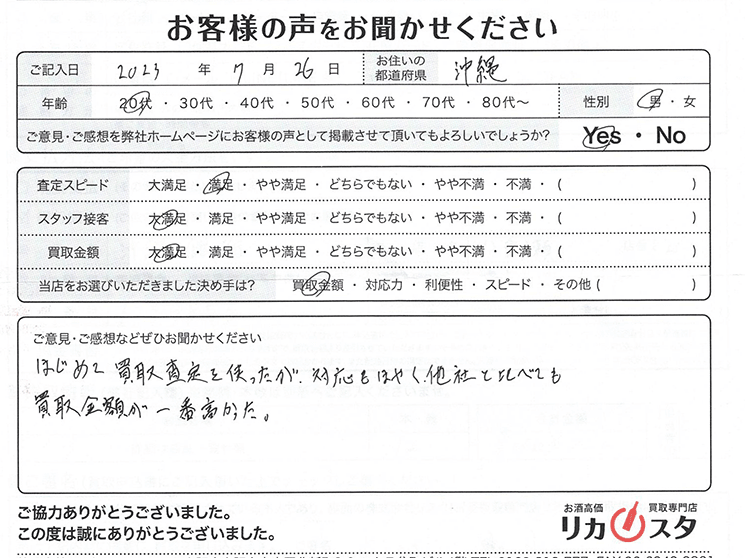 お客様の声をお聞かせください
ご記入日 2023 年 7 月 26 日 お住いの都道府県 沖縄
年齢 20代 ・ 30代 ・ 40代 ・ 50代 ・ 60代 ・ 70代 ・ 80代〜 性別 男 ・ 女
ご意見・ご感想を弊社ホームページにお客様の声として掲載させて頂いてもよろしいでしょうか? Yes ・ No
査定スピード 大満足 ・ 満足 ・ やや満足 ・ どちらでもない ・ やや不満 ・ 不満 ・ ( )
スタッフ接客 大満足 ・ 満足 ・ やや満足 ・ どちらでもない ・ やや不満 ・ 不満 ・ ( )
買取金額 大満足 ・ 満足 ・ やや満足 ・ どちらでもない ・ やや不満 ・ 不満 ・ ( )
当店をお選びいただきました決め手は? 買取金額 ・ 対応力 ・ 利便性 ・ スピード ・ その他 ( )
ご意見・ご感想などぜひお聞かせください
はじめて買取査定を使ったが、対応もはやく他社と比べても
買取金額が一番高かった。
ご協力ありがとうございました。
この度は誠にありがとうございました。
お酒高価 買取専門店
リカスタ